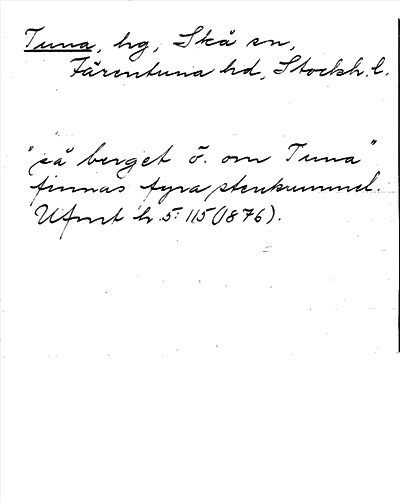 Tuna, hg, Skå sn,
Färentuna hd, Stockh. l.
"på berget ö. om Tuna"
finnas fyra stenkummel.
Ufmt h. 5: 115 (1876).